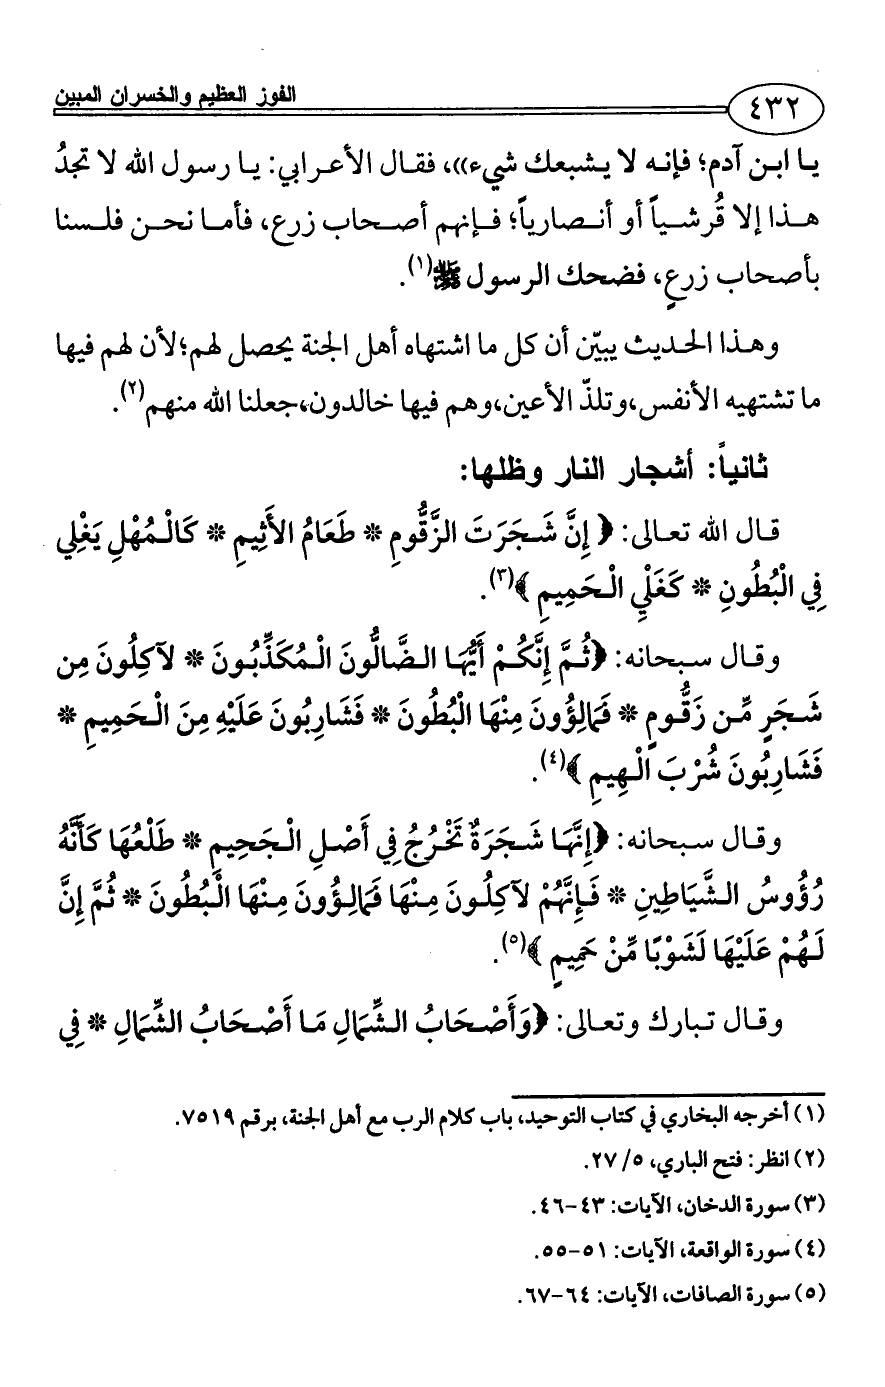 ٤٣٢
الفوز العظيم والخسران المبين
يا ابن آدم؛ فإنه لا يشبعك شيء))، فقال الأعرابي: يا رسول الله لا تجدُ
هذا إلا قُرشياً أو أنصارياً؛ فإنهم أصحاب زرع، فأما نحن فلسنا
بأصحاب زرعٍ، فضحك الرسول ﷺ(١).
وهذا الحديث يبيّن أن كل ما اشتهاه أهل الجنة يحصل لهم؛لأن لهم فيها
ما تشتهيه الأنفس،وتلذّ الأعين،وهم فيها خالدون،جعلنا الله منهم(٢).
ثانياً: أشجار النار وظلها:
قال الله تعالى: ﴿ إِنَّ شَجَرَتَ الزَّقُّومِ * طَعَامُ الأَثِيمِ * كَالْمُهْلِ يَغْلِي
فِي الْبُطُونِ * كَغَلْيِ الْحَمِيمِ ﴾(٣).
وقال سبحانه: ﴿ثُمَّ إِنَّكُمْ أَيُّهَا الضَّالُّونَ الْمُكَذِّبُونَ * لآكِلُونَ مِن
شَجَرٍ مِّن زَقُّومٍ * فَمَالِؤُونَ مِنْهَا الْبُطُونَ * فَشَارِبُونَ عَلَيْهِ مِنَ الْحَمِيمِ *
فَشَارِبُونَ شُرْبَ الْهِيمِ ﴾(٤).
وقال سبحانه: ﴿إِنَّهَا شَجَرَةٌ تَخْرُجُ فِي أَصْلِ الْجَحِيمِ * طَلْعُهَا كَأَنَّهُ
رُؤُوسُ الشَّيَاطِينِ * فَإِنَّهُمْ لآكِلُونَ مِنْهَا فَمَالِؤُونَ مِنْهَا الْبُطُونَ * ثُمَّ إِنَّ
لَهُمْ عَلَيْهَا لَشَوْبًا مِّنْ حَمِيمٍ ﴾(٥).
وقال تبارك وتعالى: ﴿وَأَصْحَابُ الشِّمَالِ مَا أَصْحَابُ الشِّمَالِ * فِي
(١) أخرجه البخاري في كتاب التوحيد، باب كلام الرب مع أهل الجنة، برقم ٧٥١٩.
(٢) انظر: فتح الباري، ٥/ ٢٧.
(٣) سورة الدخان، الآيات: ٤٣-٤٦.
(٤) سورة الواقعة، الآيات: ٥١-٥٥.
(٥) سورة الصافات، الآيات: ٦٤-٦٧.